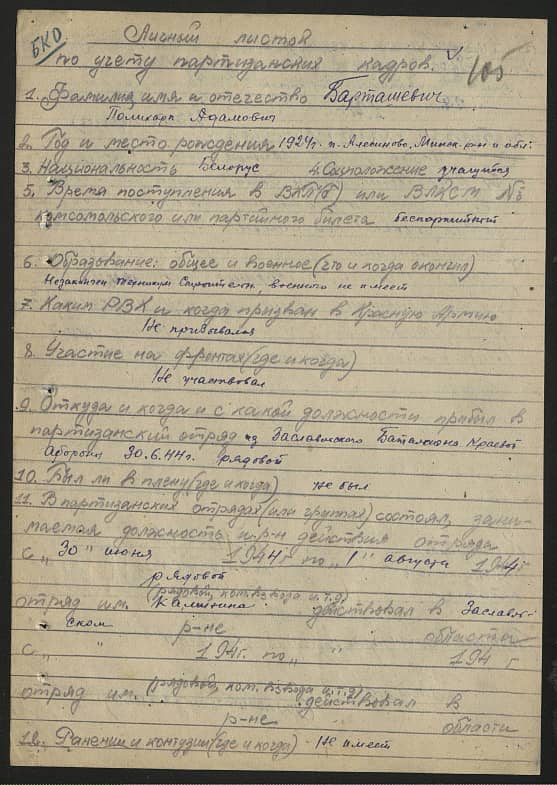 БКО
Личный листок
по учету партизанских кадров.
105
1. Фамилия, имя и отечество Барташевич
Поликарп Адамович
2. Год и место рождения 1924г. Минск. р-н и обл.
3. Национальность Белорус 4. Соцположение учащийся
5. Время поступления в ВКП(б) или ВЛКСМ №
комсомольского или партийного билета беспартийный
6. Образование: общее и военное (что и когда окончил)
Незакончен техникум военного не имеет
7. Каким РВК и когда призван в Красную Армию
Не призывался
8. Участие на фронтах (где и когда)
Не участвовал
9. Откуда и когда и с какой должности прибыл в
партизанский отряд из Заславского Батальона Краевой
Обороны 30.6.44г. рядовой
10. Был ли в плену (где и когда) Не был
11. В партизанских отрядах (или группах) состоял, зани-
маемая должность и р-н действия отряда
с „ 30 " июня 1944г по „ 1 " августа 1944г
рядовой
(рядовой, ком. взвода и.т.д)
отряд им. Калинина действовал в Заслав-
ском р-не области
с „ " 194г. по „ " 194 г
(рядовой, ком. взвода и.т.д)
отряд им. действовал в
р-не области
12. Ранении и контузии (где и когда) Не имеет